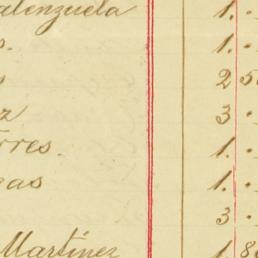 alenzuela 1.
o. 1.
2 50
z 3
rres. 1.
gas 1.
3
Martínez 1 80